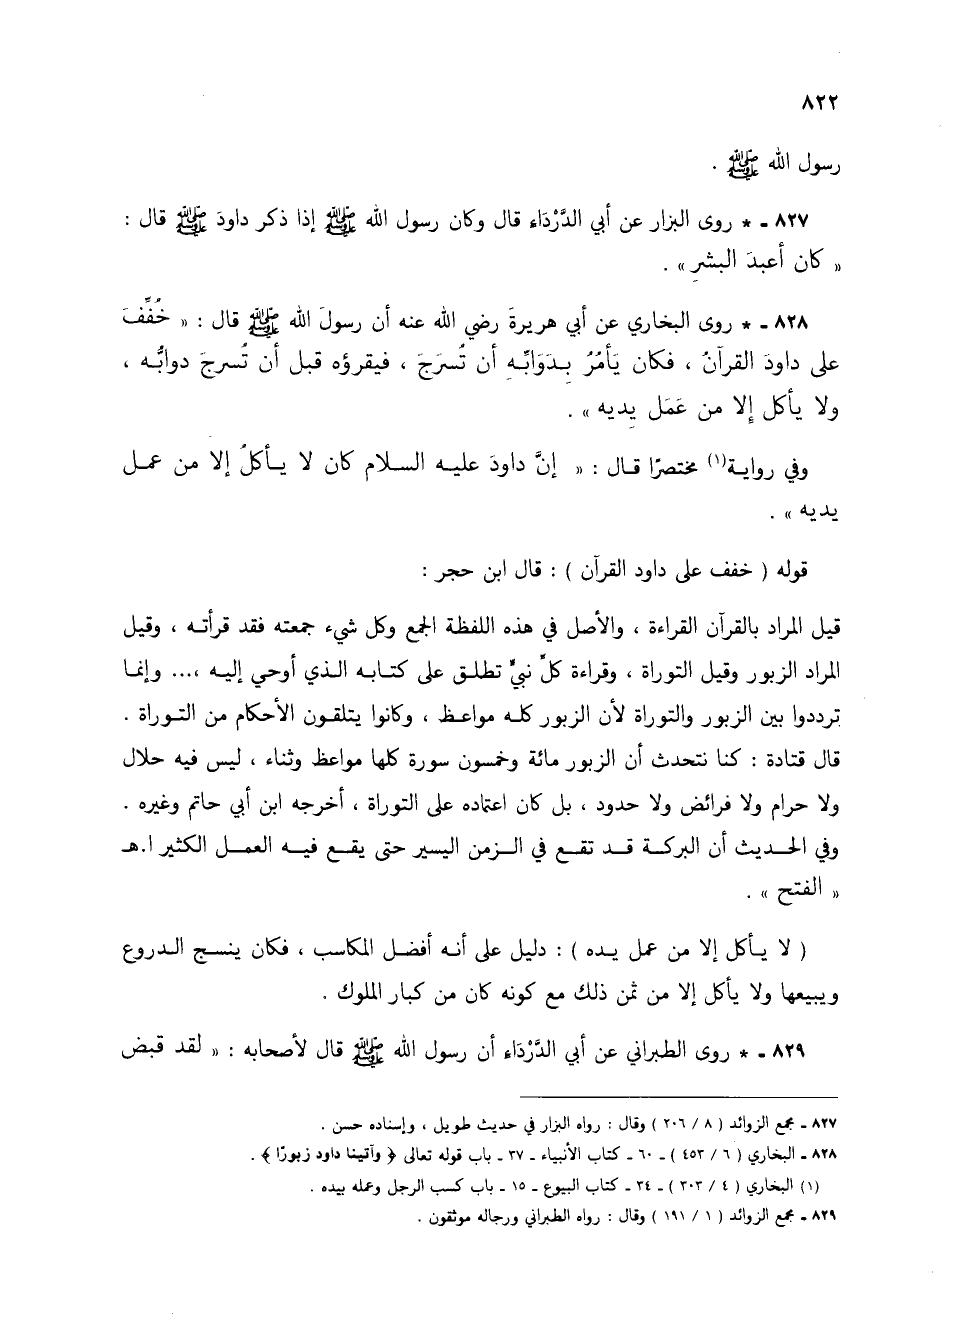 ٨٢٢
رسول الله ﷺ .
٨٢٧ ـ * روى البزار عن أبي الدَّرْدَاء قال وكان رسول الله ﷺ إذا ذكر داودَ ﷺ قال :
« كان أعبدَ البشرِ » .
٨٢٨ ـ * روى البخاري عن أبي هريرةَ رضي الله عنه أن رسولَ الله ﷺ قال : « خُفِّفَ
على داودَ القرآنُ ، فكان يَأمُرُ بِدَوَابِّهِ أن تُسرَجَ ، فيقرؤه قبل أن تُسرجَ دوابُّه ،
ولا يأكل إلا من عَمَل يِديه » .
وفي روايـة(١) مختصرًا قـال : « إنَّ داودَ عليـه السـلام كان لا يـأكلُ إلا من عمـل
يديه » .
قوله ( خفف على داود القرآن ) : قال ابن حجر :
قيل المراد بالقرآن القراءة ، والأصل في هذه اللفظة الجمع وكل شيء جمعته فقد قرأتـه ، وقيل
المراد الزبور وقيل التوراة ، وقراءة كلِّ نبيٍّ تطلـق على كتـابـه الـذي أوحي إليـه ،... وإنمـا
ترددوا بين الزبور والتوراة لأن الزبور كلـه مواعـظ ، وكانوا يتلقـون الأحكام من التـوراة .
قال قتادة : كنا نتحدث أن الزبور مائة وخمسون سورة كلها مواعظ وثناء ، ليس فيه حلال
ولا حرام ولا فرائض ولا حدود ، بل كان اعتماده على التوراة ، أخرجه ابن أبي حاتم وغيره .
وفي الحـديث أن البركـة قـد تقـع في الـزمن اليسير حتى يقـع فيـه العمـل الكثير ا.هـ
« الفتح » .
( لا يـأكل إلا من عمل يـده ) : دليل على أنـه أفضـل المكاسب ، فكان ينسـج الـدروع
ويبيعها ولا يأكل إلا من ثمن ذلك مع كونه كان من كبار الملوك .
٨٢٩ ـ * روى الطبراني عن أبي الدَّرْدَاء أن رسول الله ﷺ قال لأصحابه : « لقد قبض
٨٢٧ ـ مجمع الزوائد ( ٨ / ٢٠٦ ) وقال : رواه البزار في حديث طويل ، وإسناده حسن .
٨٢٨ ـ البخاري ( ٦ / ٤٥٣ ) ـ ٦٠ ـ كتاب الأنبياء ـ ٣٧ ـ باب قوله تعالى ﴿ وآتينا داود زبورًا ﴾ .
(١) البخاري ( ٤ / ٣٠٣ ) ـ ٣٤ ـ كتاب البيوع ـ ١٥ ـ باب كسب الرجل وعمله بيده .
٨٢٩ ـ مجمع الزوائد ( ١ / ١٩١ ) وقال : رواه الطبراني ورجاله موثقون .